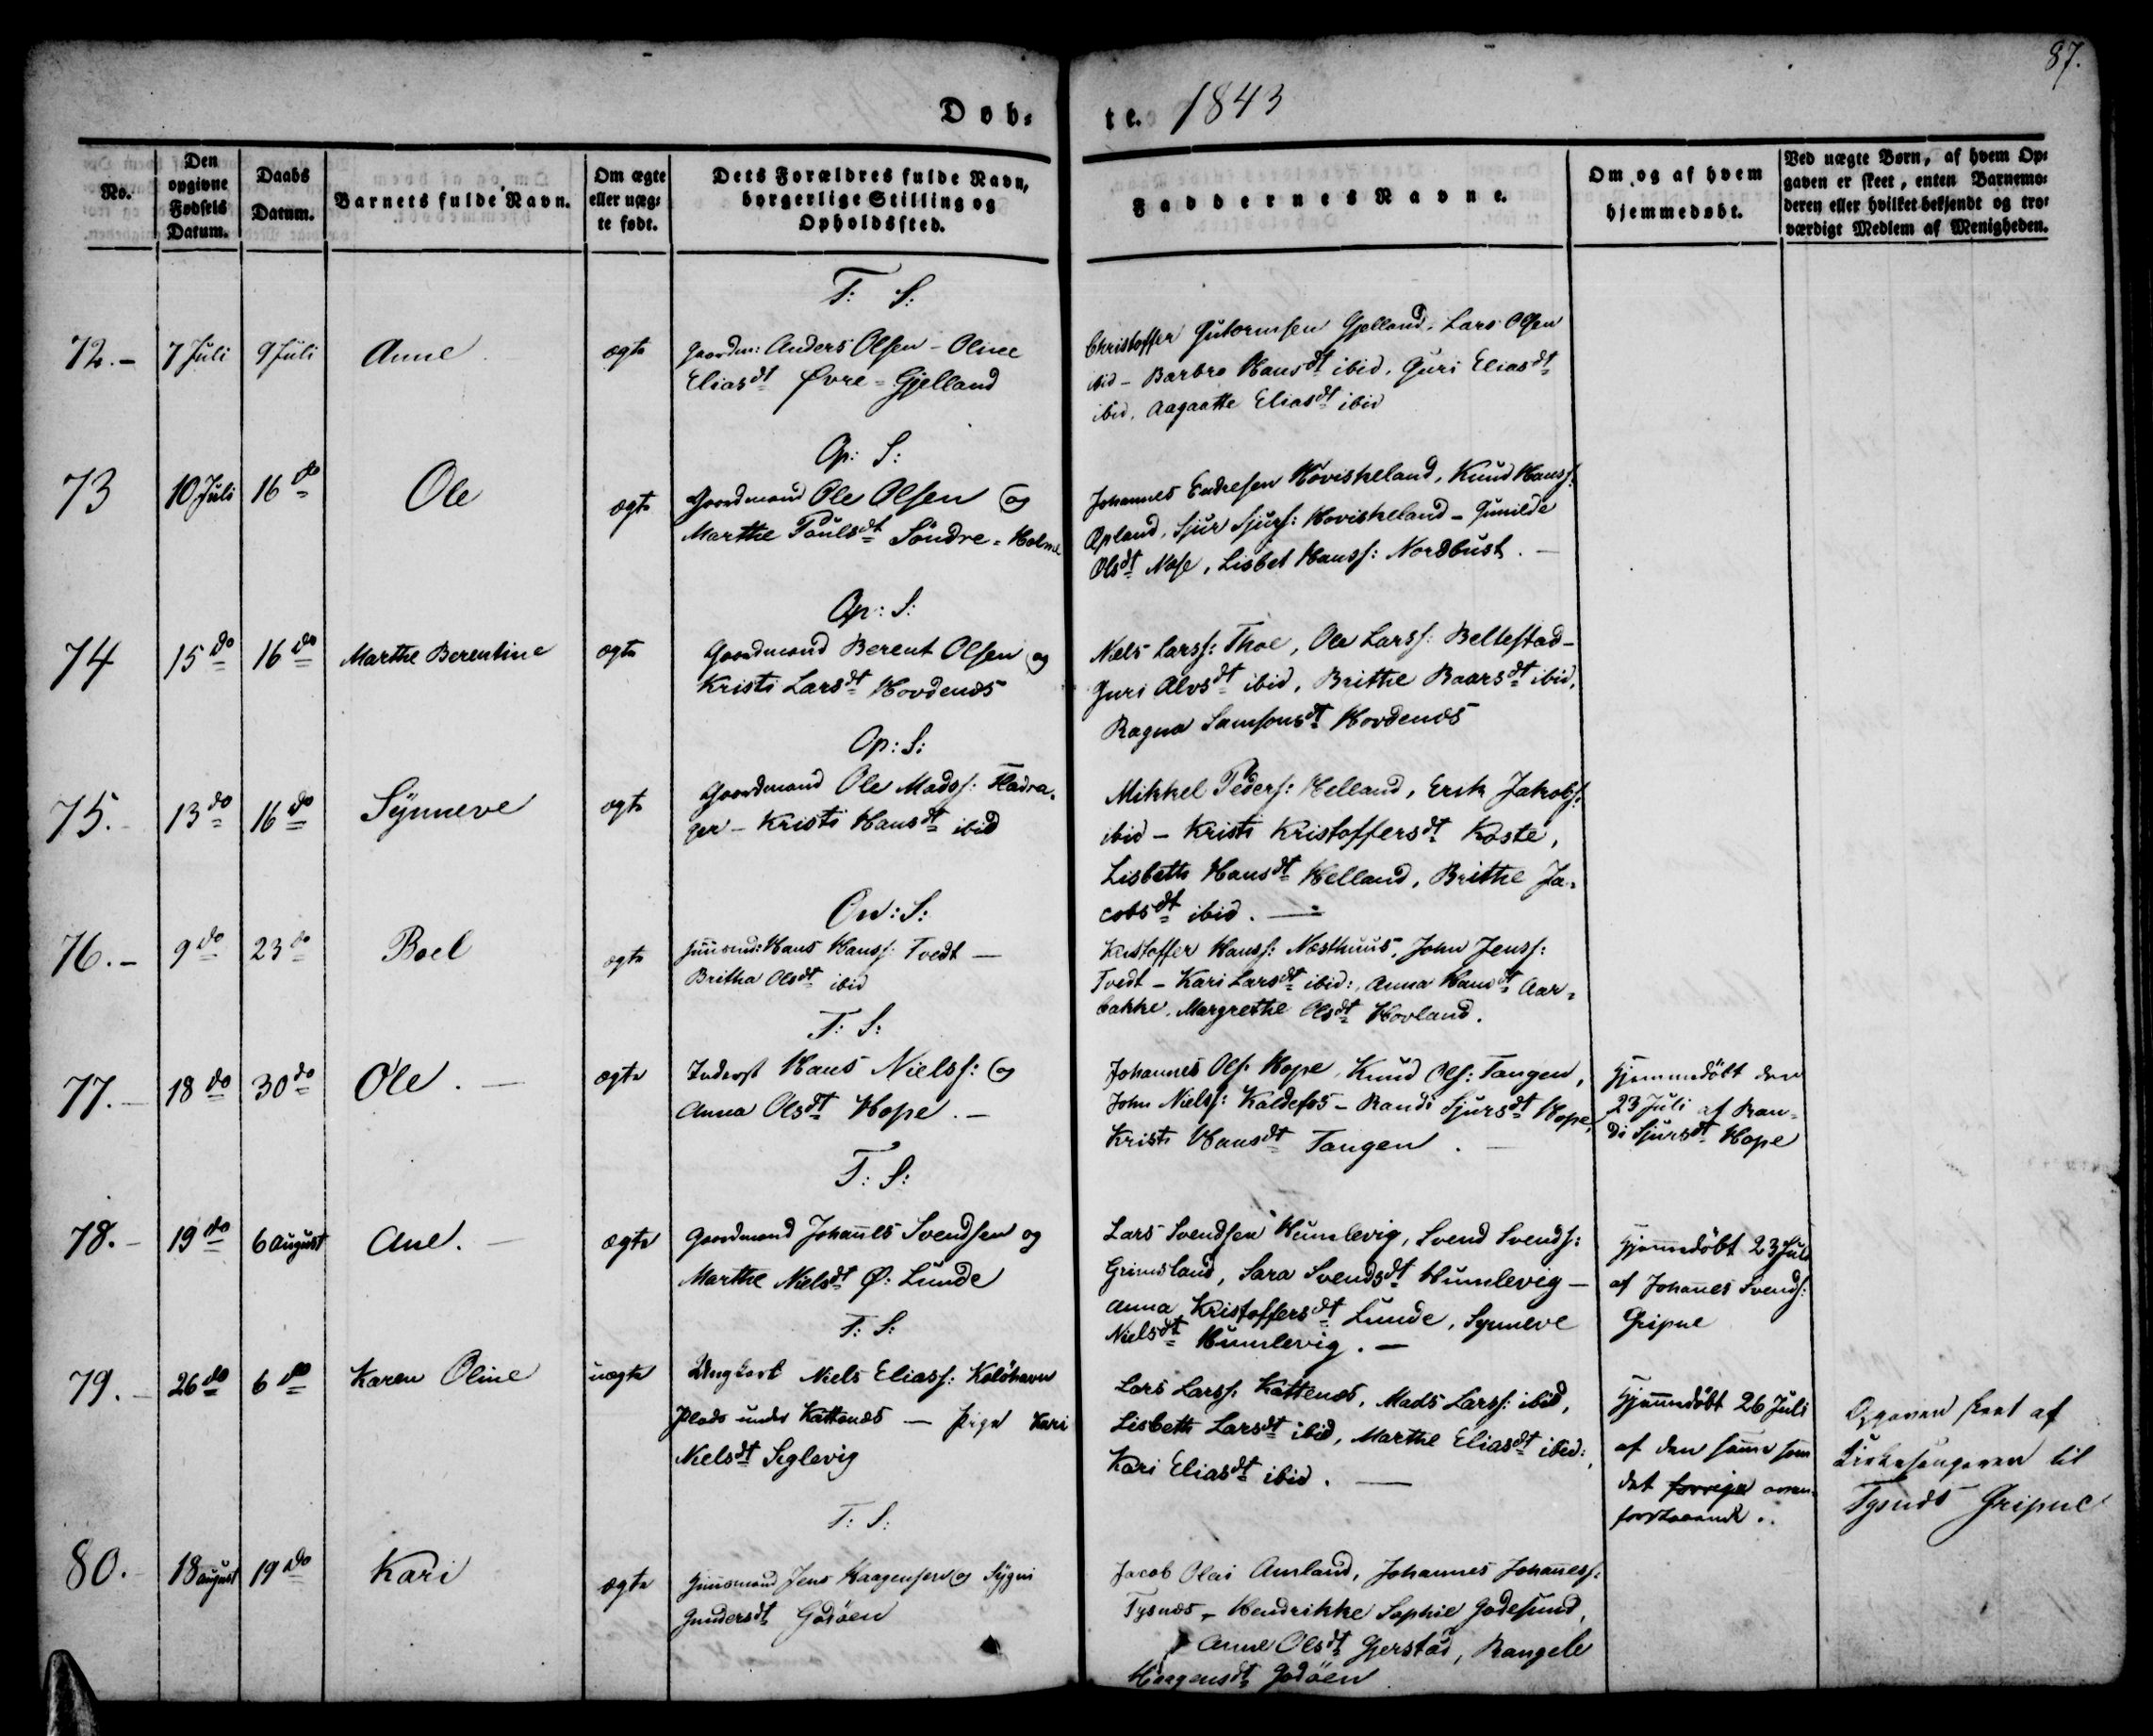 87.
Døb-
te. 1843
No.
Den opgivne Fødsels Datum.
Daabs Datum.
Barnets fulde Navn.
Om ægte eller uæg-
te født.
Dets Forældres fulde Navn,
borgerlige Stilling og
Opholdssted.
Faddernes Navne.
Om og af hvem
hjemmedøbt.
Ved uægte Børn, af hvem Op-
gaven er skeet, enten Barnemo-
deren eller hvilket bekjendt og tro-
værdigt Medlem af Menigheden.
T: S:
72.- 7 Juli 9 Juli Anne ægte
Gaardm: Anders Olsen - Oline
Eliasdt Øvre-Gjelland
Christoffer Gutormsen Gjelland, Lars Olsen
ibid - Barbro Hansdt ibid, Guri Eliasdt
ibid, Aagaatte Eliasdt ibid
Op: S:
73 10 Juli 16 do Ole ægte
Gaardmand Ole Olsen og
Marthe Poulsdt Söndre-Holme
Johannes Endresen Hoviskeland, Knud Hanss:
Opland, Sjur Sjurs: Hoviskeland - Gunilde
Olsdt Nese, Lisbet Hanss: Nordbust. -
Op: S:
74 15 do 16 do Marthe Berentine ægte
Gaardmand Berent Olsen og
Kristi Larsdt Hovdenæs
Niels Larss: Thoe, Ole Larss: Beltestad -
Guri Alvsdt ibid, Brithe Baarsdt ibid,
Ragna Samsonsdt Hovdenæs
Op: S:
75. 13 do 16 do Synneve ægte
Gaardmand Ole Madss: Fladra-
ger - Kristi Hansdt ibid
Mikkel Peders: Helland, Erik Jakobs:
ibid - Kristi Kristoffersdt Koste,
Lisbeth Hansdt Helland, Brithe Ja-
cobsdt ibid. -
On: S:
76.- 9 do 23 do Boel ægte
Huusmd: Hans Hanss: Tvedt -
Britha Olsdt ibid
Kristoffer Hanss: Næsthuus, John Jenss:
Tvedt - Kari Larsdt ibid:, Anna Hansdt Aar-
bakke, Margrethe Olsdt Hovland.
T: S:
77.- 18 do 30 do Ole. - ægte
Inderst Hans Nielss: og
Anna Olsdt Hope. -
Johannes Ols: Hope, Knud Ols: Tangen,
John Nielss: Kaldefos - Randi Sjursdt Hope,
Kristi Hansdt Tangen. -
Hjemmedöbt den
23 Juli af Ran-
di Sjursdt Hope
T: S:
78.- 19 do 6 August Ane. - ægte
Gaardmand Johannes Svendsen og
Marthe Nielsdt Ø: Lunde
Lars Svendsen Humlevig, Svend Svends:
Grimsland, Sara Svendsdt Humlevig -
Anna Kristoffersdt Lunde, Synneve
Nielsdt Humlevig. -
Hjemmedöbt 23 Juli
af Johannes Svends:
Gripne
T: S:
79.- 26 do 6 do Karen Oline uægte
Ungkarl Niels Eliass: Kolöhavn
Plads under Kattenæs - Pige Kari
Nielsdt Seglevig
Lars Larss: Kattenæs, Mads Larss: ibid,
Lisbeth Larsdt ibid, Marthe Eliasdt ibid:,
Kari Eliasdt ibid. -
Hjemmedöbt 26 Juli
af den samme som
det forrige oven-
forstaaende.
Opgaven skeet af
Kirkesangeren til
Tysnæs Gripne
T: S:
80. 18 august 19 do Kari ægte
Huusmand Jens Haagensen og Sygni
Gundersdt Godöen
Jacob Olai Amland, Johannes Johaness:
Tysnæs - Hendrikke Sophie Godesund,
Anne Olsdt Gjerstad, Rangele
Haagensdt Godöen